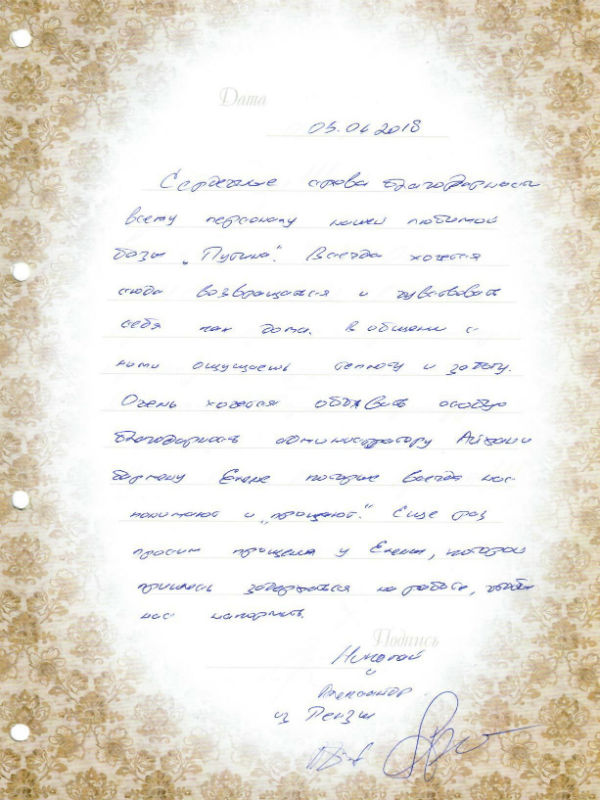 Дата
05.06.2018
Сердечные слова благодарности
всему персоналу нашей любимой
базы „Путина". Всегда хочется
сюда возвращаться и чувствовать
себя как дома. В общении с
ними ощущаешь теплоту и заботу.
Очень хочется объявить особую
благодарность администратору
бармену Елене которые всегда нас
понимают и „прощают". Еще раз
просим прощения у Елены, которой
пришлось задержаться на работе, чтобы
нас накормить.
Подпись
Николай
и
Александр
из Пензы